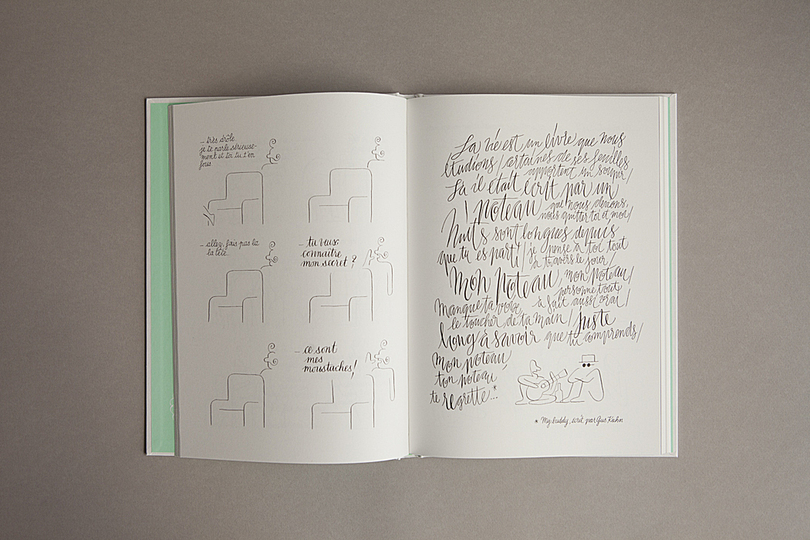 — très drôle.
je te parle sérieuse-
ment et toi tu t'en
fous
— allez, fais pas la
la tête.
— tu veux
connaître
mon secret ?
— ce sont
mes
moustaches!
La vie est un livre que nous
étudions/certaines de ses feuilles
apportent un soupir/
Là il était écrit par un
poteau que nous devions,
nous quitter toi et moi/
Nuits sont longues depuis
que tu es parti je pense à toi tout
à travers le jour/
Mon poteau, mon poteau/
personne tout
à fait aussi vrai/
manque ta voix
le toucher de ta main/Juste
long à savoir que tu comprends/
mon poteau,
ton poteau
te regrette...*
* My buddy, écrit par Gus Kuhn